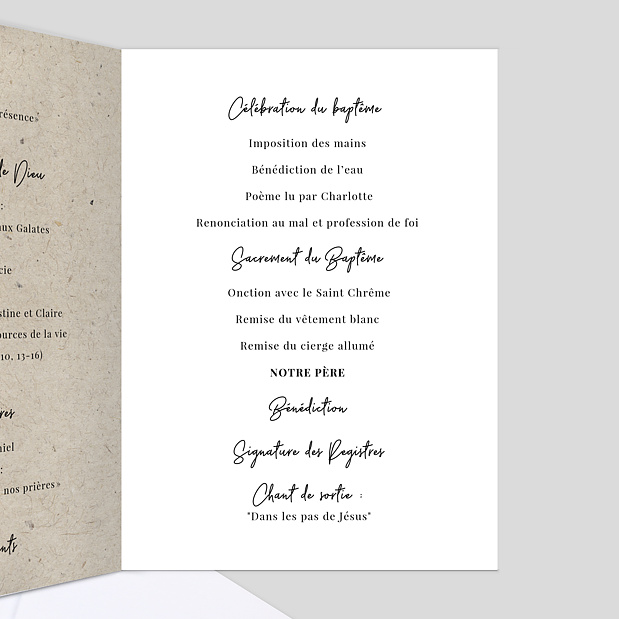 résence»
de Dieu
:
ux Galates
cie
stine et Claire
ources de la vie
10, 13-16)
res
niel
:
nos prières»
nts
Célébration du baptême
Imposition des mains
Bénédiction de l'eau
Poème lu par Charlotte
Renonciation au mal et profession de foi
Sacrement du Baptême
Onction avec le Saint Chrême
Remise du vêtement blanc
Remise du cierge allumé
NOTRE PÈRE
Bénédiction
Signature des Registres
Chant de sortie :
"Dans les pas de Jésus"